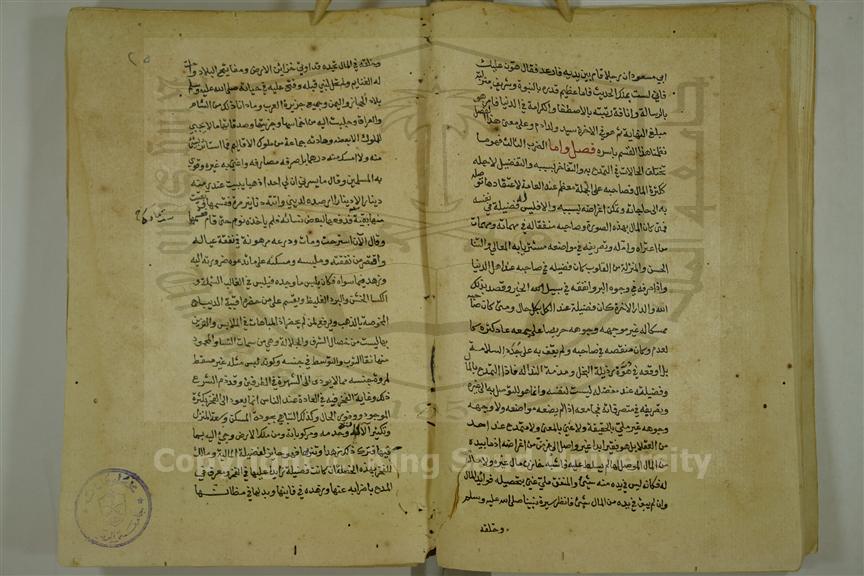 ابي مسعود ان رجلا قام بين يديه فارعد فقال هون عليك
فاني لست بملك الحديث فاما عظيم قدره بالنبوة وشريف منزلته
بالرسالة وانافة رتبته بالاصطفا والكرامة في الدنيا فامر هو
مبلغ النهاية ثم هو في الاخرة سيد ولد ادم وعلى معنى هذا الفصل
نظمنا هذا القسم باسره فصل واما الضرب الثالث فهو ما
تختلف الحالات في التمدح به والتفاخر بسببه والتفضيل لاجله
ككثرة المال فصاحبه على الجملة معظم عند العامة لاعتقادها توصله
به الى حاجاته وتمكن اغراضه بسببه والا فليس فضيلة في نفسه
فمتى كان المال بهذه الصورة وصاحبه منفقا له في مهماته ومهمات
من اعتراه وامله وتصريفه في مواضعه مشتريا به المعالي والثنا
الحسن والمنزلة من القلوب كان فضيلة في صاحبه عند اهل الدنيا
واذا صرفه في وجوه البر وانفقه في سبيل الخير وقصد بذلك
الله والدار الاخرة كان فضيلة عند الكل بكل حال ومتى كان صاحبه
ممسكا له غير موجهه وجوهه حريصا على جمعه عاد كثره كا
لعدم وكان منقصة في صاحبه ولم يقف به على جدد السلامة
بل اوقعه في هوة رذيلة البخل ومذمة النذالة فاذا التمدح بالمال
وفضيلته عند مفضله ليست لنفسه وانما هو للتوصل به الى غيره
وتصريفه في متصرفاته فجامعه اذا لم يضعه مواضعه ولا وجهه
وجوهه غير ملي بالحقيقة ولا غني بالمعنى ولا ممتدح عند احد
من العقلا بل هو فقير ابدا غير واصل الى غرض من اغراضه اذ ما بيده
من المال الموصل لها لم يسلط عليه فاشبه خازن مال غيره ولا مال
له فكانه ليس في يده منه شيء والمنفق ملي غني بتحصيله فوائد المال
وان لم يبق في يده من المال شيء فانظر سيرة نبينا صلى الله عليه وسلم
وخلقه
وخلقه في المال تجده قد اوتي خزائن الارض ومفاتيح البلاد واحلت
له الغنايم ولم تحل لنبي قبله وفتح عليه في حياته صلى الله عليه وسلم
بلاد الحجاز واليمن وجميع جزيرة العرب وما دانا ذلك من الشام
والعراق وجلبت اليه من اخماسها وجزيتها وصدقاتها ما لا يجبى
للملوك الا بعضه وهادته جماعة من ملوك الاقاليم فما استاثر بشيء
منه ولا امسك منه درهما بل صرفه مصارفه واغنى به غيره وقوى
به المسلمين وقال ما يسرني ان لي احدا ذهبا يبيت عندي منه
دينار الا دينار ارصده لديني واتته دنانير مرة فقسمها وبقيت
منها بقية فدفعها لبعض نسائه فلم ياخذه نوم حتى قام وقسمها
وقال الآن استرحت ومات ودرعه مرهونة في نفقة عياله
واقتصر من نفقته وملبسه ومسكنه على ما تدعوه ضرورته اليه
وزهد فيما سواه فكان يلبس ما وجده فيلبس في الغالب الشملة و
الكسا الخشن والبرد الغليظ ويقسم على من حضره اقبية الديباج
المخوصة بالذهب ويرفع لمن لم يحضر اذ المباهات في الملابس والتزين
بها ليست من خصال الشرف والجلالة وهي من سمات النسا والمحمود
منها نقا الثوب والتوسط في جنسه وكونه لبس مثله غير مسقط
لمروة جنسه مما لا يودي الى الشهرة في الطرفين وقد ذم الشرع
ذلك وغاية الفخر فيه في العادة عند الناس انما يعود الى الفخر بكثرة
الموجود ووفور الحال وكذلك التباهي بجودة المسكن وسعة المنزل
وتكثير آلاته وخدمه ومركوباته ومن ملك الارض وجبي اليه ما
فيها فترك ذلك زهدا وتنزها فهو حايز لفضيلة المال ومالك
للفخر بهذه الخصلة ان كانت فضيلة زايدا عليها في الفخر ومعرق في
المدح باضرابه عنها وزهده في فانيها وبذلها في مظانها
Copyright © King Saud University
1957